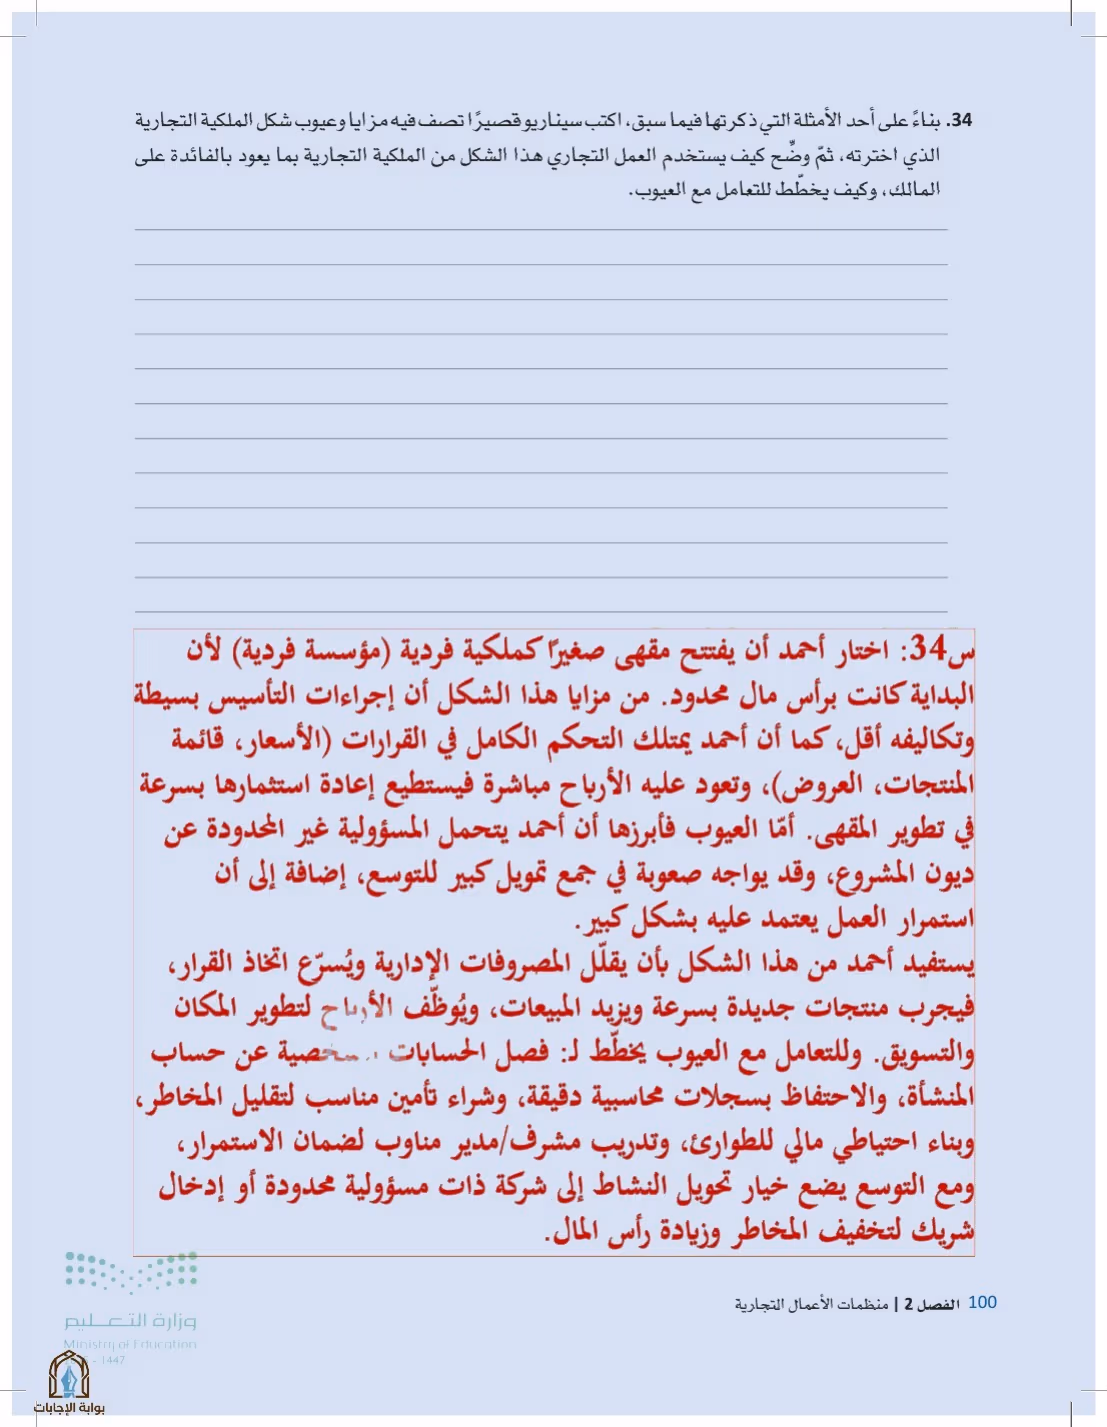 34. بناءً على أحد الأمثلة التي ذكرتها فيما سبق، اكتب سيناريو قصيرًا تصف فيه مزايا وعيوب شكل الملكية التجارية
الذي اخترته، ثمّ وضِّح كيف يستخدم العمل التجاري هذا الشكل من الملكية التجارية بما يعود بالفائدة على
المالك، وكيف يخطّط للتعامل مع العيوب.
س34: اختار أحمد أن يفتتح مقهى صغيرًا كملكية فردية (مؤسسة فردية) لأن
البداية كانت برأس مال محدود. من مزايا هذا الشكل أن إجراءات التأسيس بسيطة
وتكاليفه أقل، كما أن أحمد يمتلك التحكم الكامل في القرارات (الأسعار، قائمة
المنتجات، العروض)، وتعود عليه الأرباح مباشرة فيستطيع إعادة استثمارها بسرعة
في تطوير المقهى. أمّا العيوب فأبرزها أن أحمد يتحمل المسؤولية غير المحدودة عن
ديون المشروع، وقد يواجه صعوبة في جمع تمويل كبير للتوسع، إضافة إلى أن
استمرار العمل يعتمد عليه بشكل كبير.
يستفيد أحمد من هذا الشكل بأن يقلّل المصروفات الإدارية ويُسرّع اتخاذ القرار،
فيجرب منتجات جديدة بسرعة ويزيد المبيعات، ويُوظّف الأرباح لتطوير المكان
والتسويق. وللتعامل مع العيوب يخطّط لـ: فصل الحسابات الشخصية عن حساب
المنشأة، والاحتفاظ بسجلات محاسبية دقيقة، وشراء تأمين مناسب لتقليل المخاطر،
وبناء احتياطي مالي للطوارئ، وتدريب مشرف/مدير مناوب لضمان الاستمرار،
ومع التوسع يضع خيار تحويل النشاط إلى شركة ذات مسؤولية محدودة أو إدخال
شريك لتخفيف المخاطر وزيادة رأس المال.
100 الفصل 2 | منظمات الأعمال التجارية
وزارة التعليم
Ministry of Education
- 1447
بوابة الإجابات